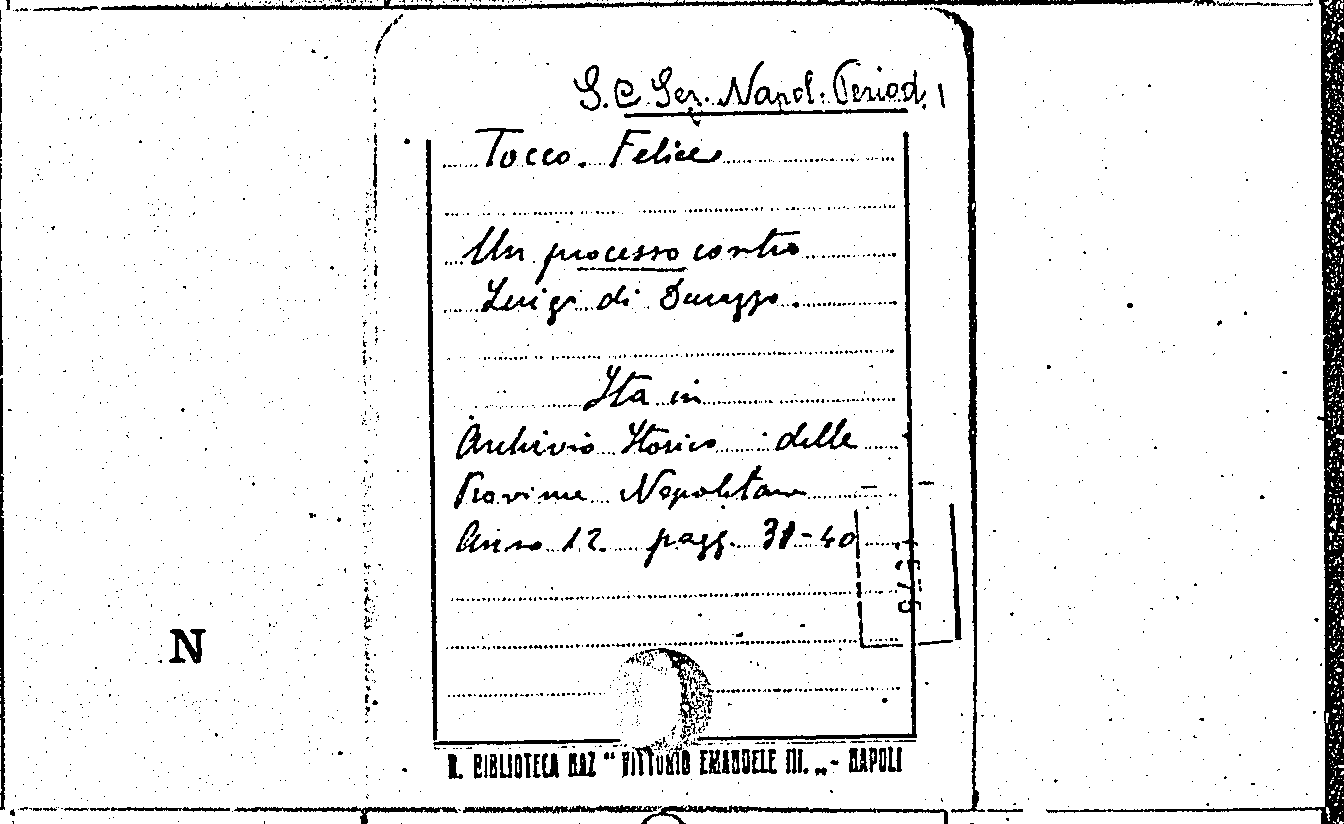 S.C. Ser. Napol. Period. 1
Tocco. Felice
Un processo contro
Luigi di Durazzo.
Sta in
Archivio Storico delle
Provincie Napolitane
Anno 12. pagg. 38-40
N
R. BIBLIOTECA NAZ "VITTORIO EMANUELE III. „ - NAPOLI